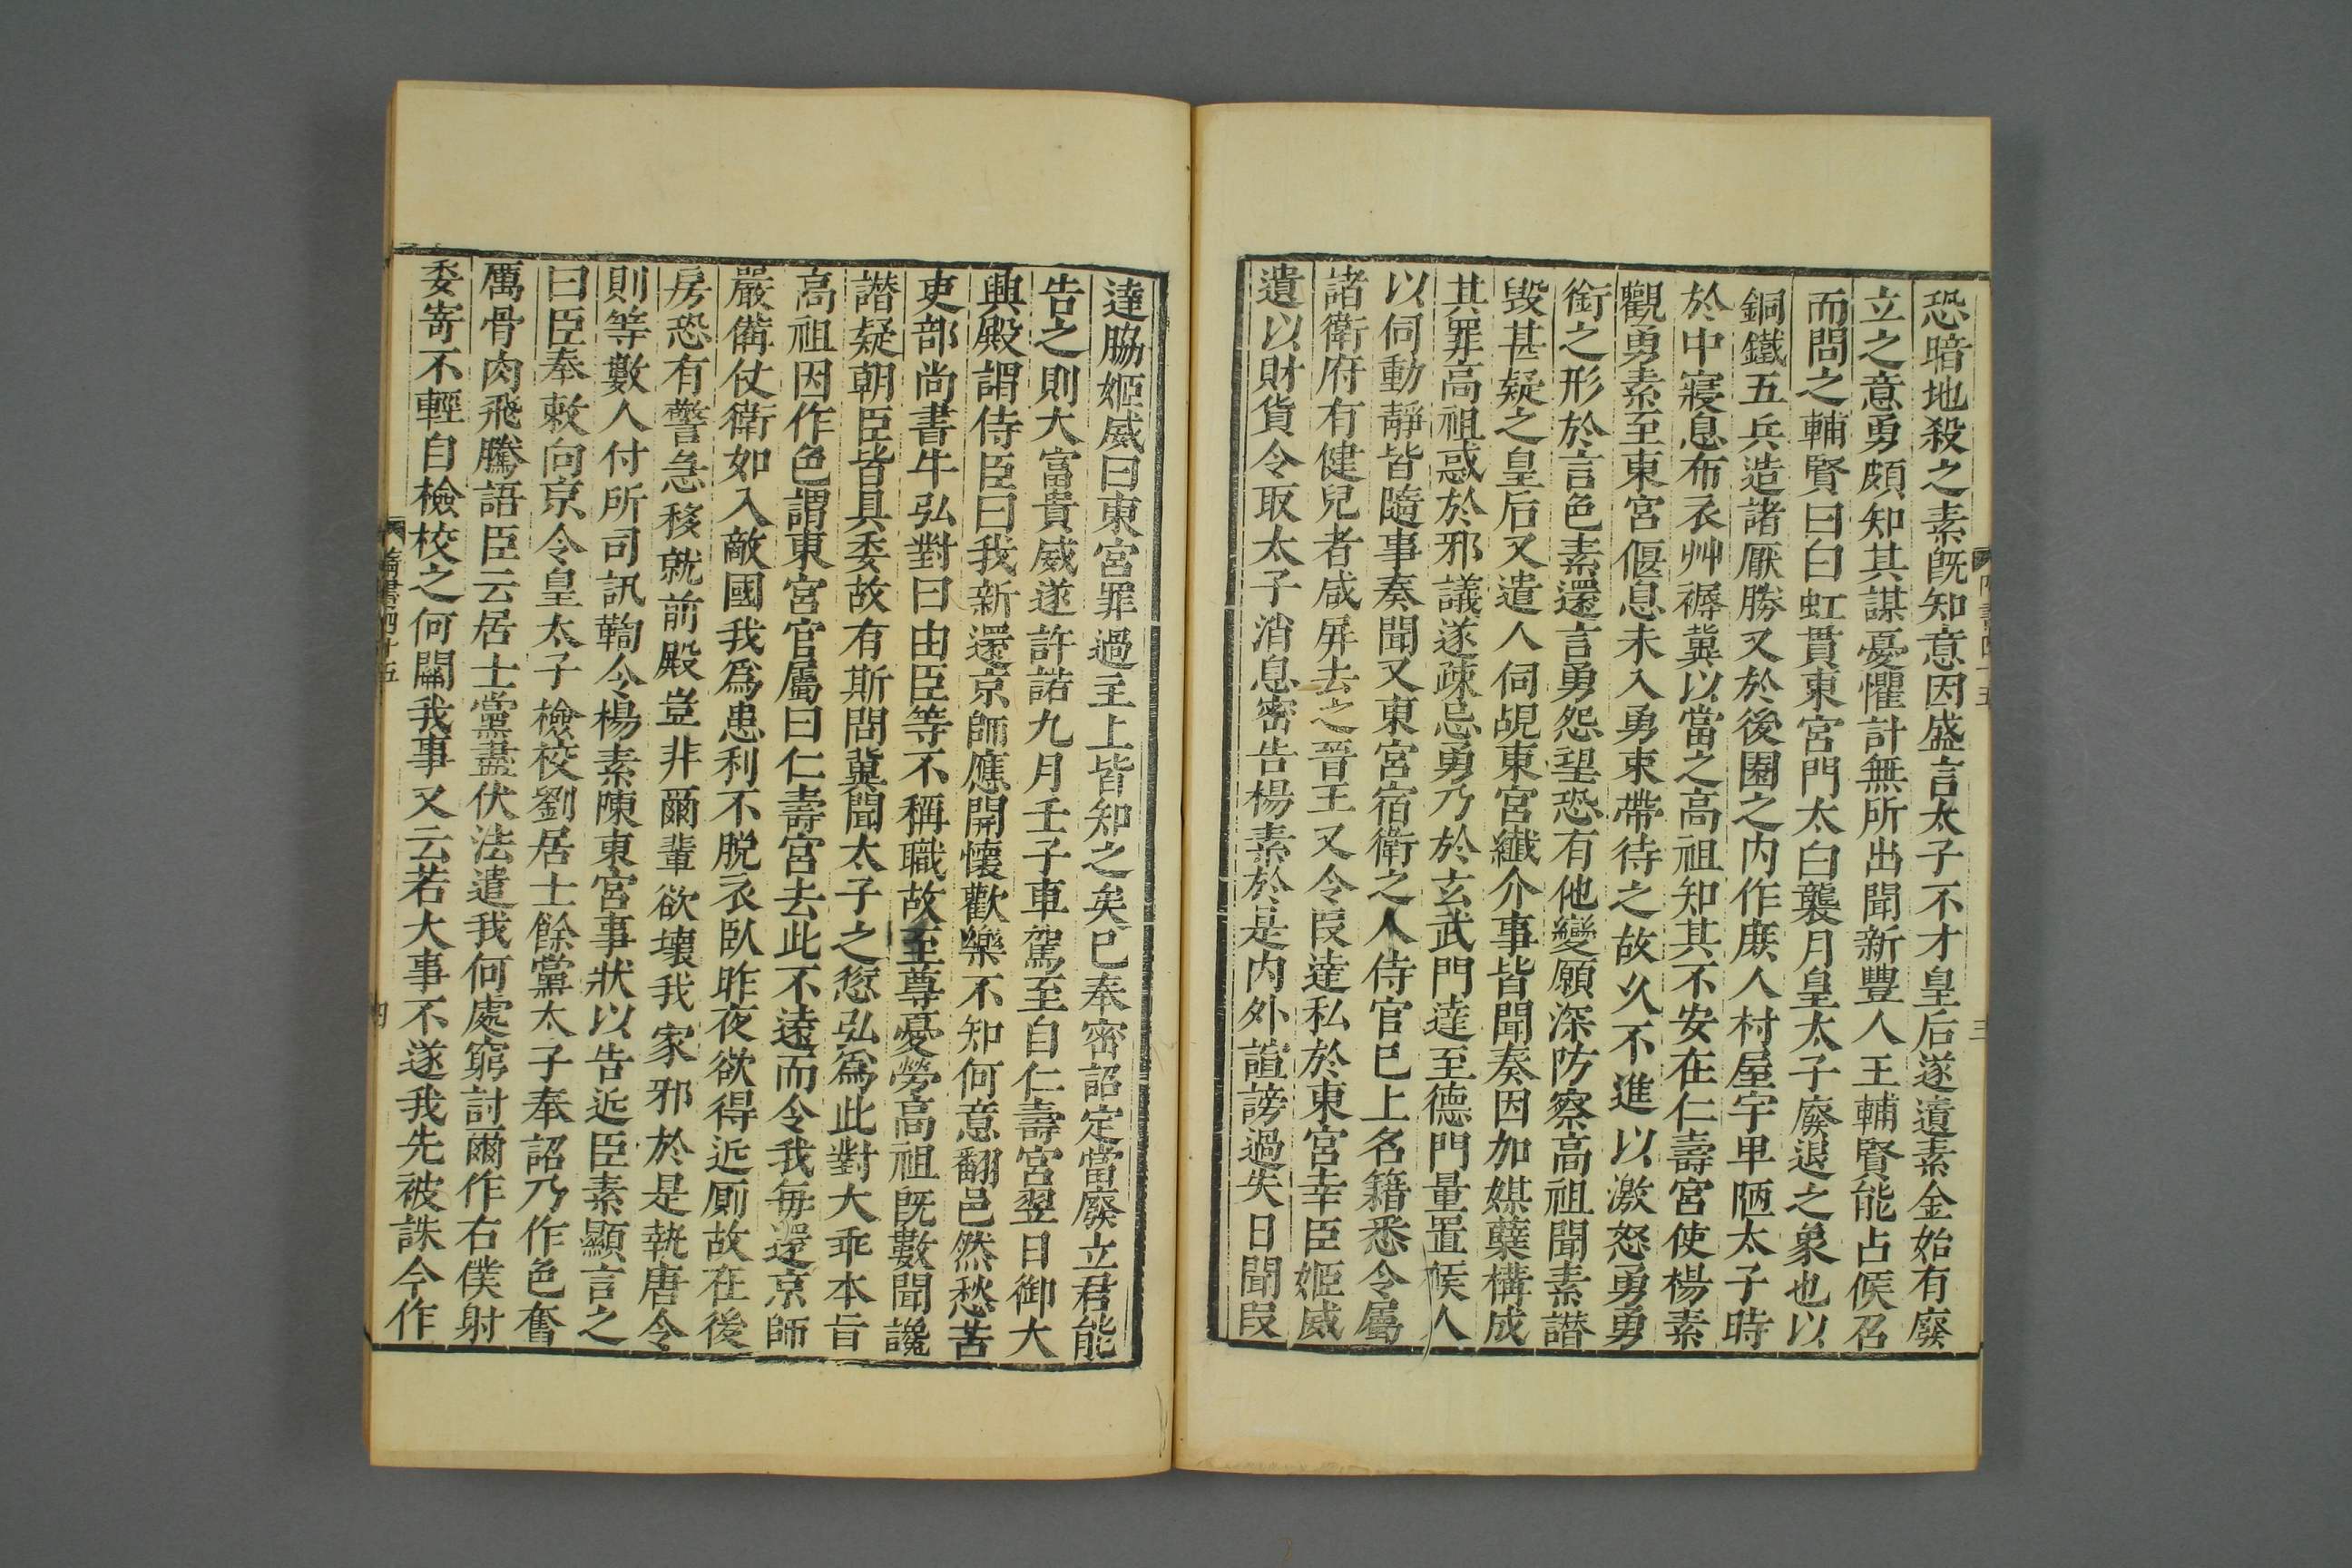 恐暗地殺之素既知意因盛言太子不才皇后遂遺素金始有廢
立之意勇頗知其謀憂懼計無所出聞新豐人王輔賢能占候召
而問之輔賢曰白虹貫東宮門太白襲月皇太子廢退之象也以
銅鐵五兵造諸厭勝又於後園之内作庶人村屋宇卑陋太子時
於中寢息布衣艸褥冀以當之高祖知其不安在仁壽宮使楊素
觀勇素至東宮偃息未入勇束帶待之故久不進以激怒勇勇
銜之形於言色素還言勇怨望恐有他變願深防察高祖聞素譖
毁甚疑之皇后又遣人伺覘東宮纖介事皆聞奏因加媒糵構成
其罪高祖惑於邪議遂疎忌勇乃於玄武門達至德門量置候人
以伺動靜皆隨事奏聞又東宮宿衛之人侍官已上名籍悉令屬
諸衛府有健兒者咸屏去之晉王又令段達私於東宮幸臣姬威
遺以財貨令取太子消息密告楊素於是内外諠謗過失日聞段
達脇姬威曰東宮罪過主上皆知之矣已奉密詔定當廢立君能
告之則大富貴威遂許諾九月壬子車駕至自仁壽宮翌日御大
興殿謂侍臣曰我新還京師應開懷歡樂不知何意翻邑然愁苦
吏部尚書牛弘對曰由臣等不稱職故至尊憂勞高祖既數聞讒
譖疑朝臣皆具委故有斯問冀聞太子之愆弘爲此對大乖本旨
高祖因作色謂東宮官屬曰仁壽宮去此不遠而令我每還京師
嚴備仗衛如入敵國我爲患利不脱衣臥昨夜欲得近厠故在後
房恐有警急移就前殿豈非爾輩欲壞我家邪於是執唐令
則等數人付所司訊鞫令楊素陳東宮事狀以告近臣素顯言之
曰臣奉敕向京令皇太子檢校劉居士餘黨太子奉詔乃作色奮
厲骨肉飛騰語臣云居士黨盡伏法遣我何處窮討爾作右僕射
委寄不輕自檢校之何關我事又云若大事不遂我先被誅今作
隋書四十五
四